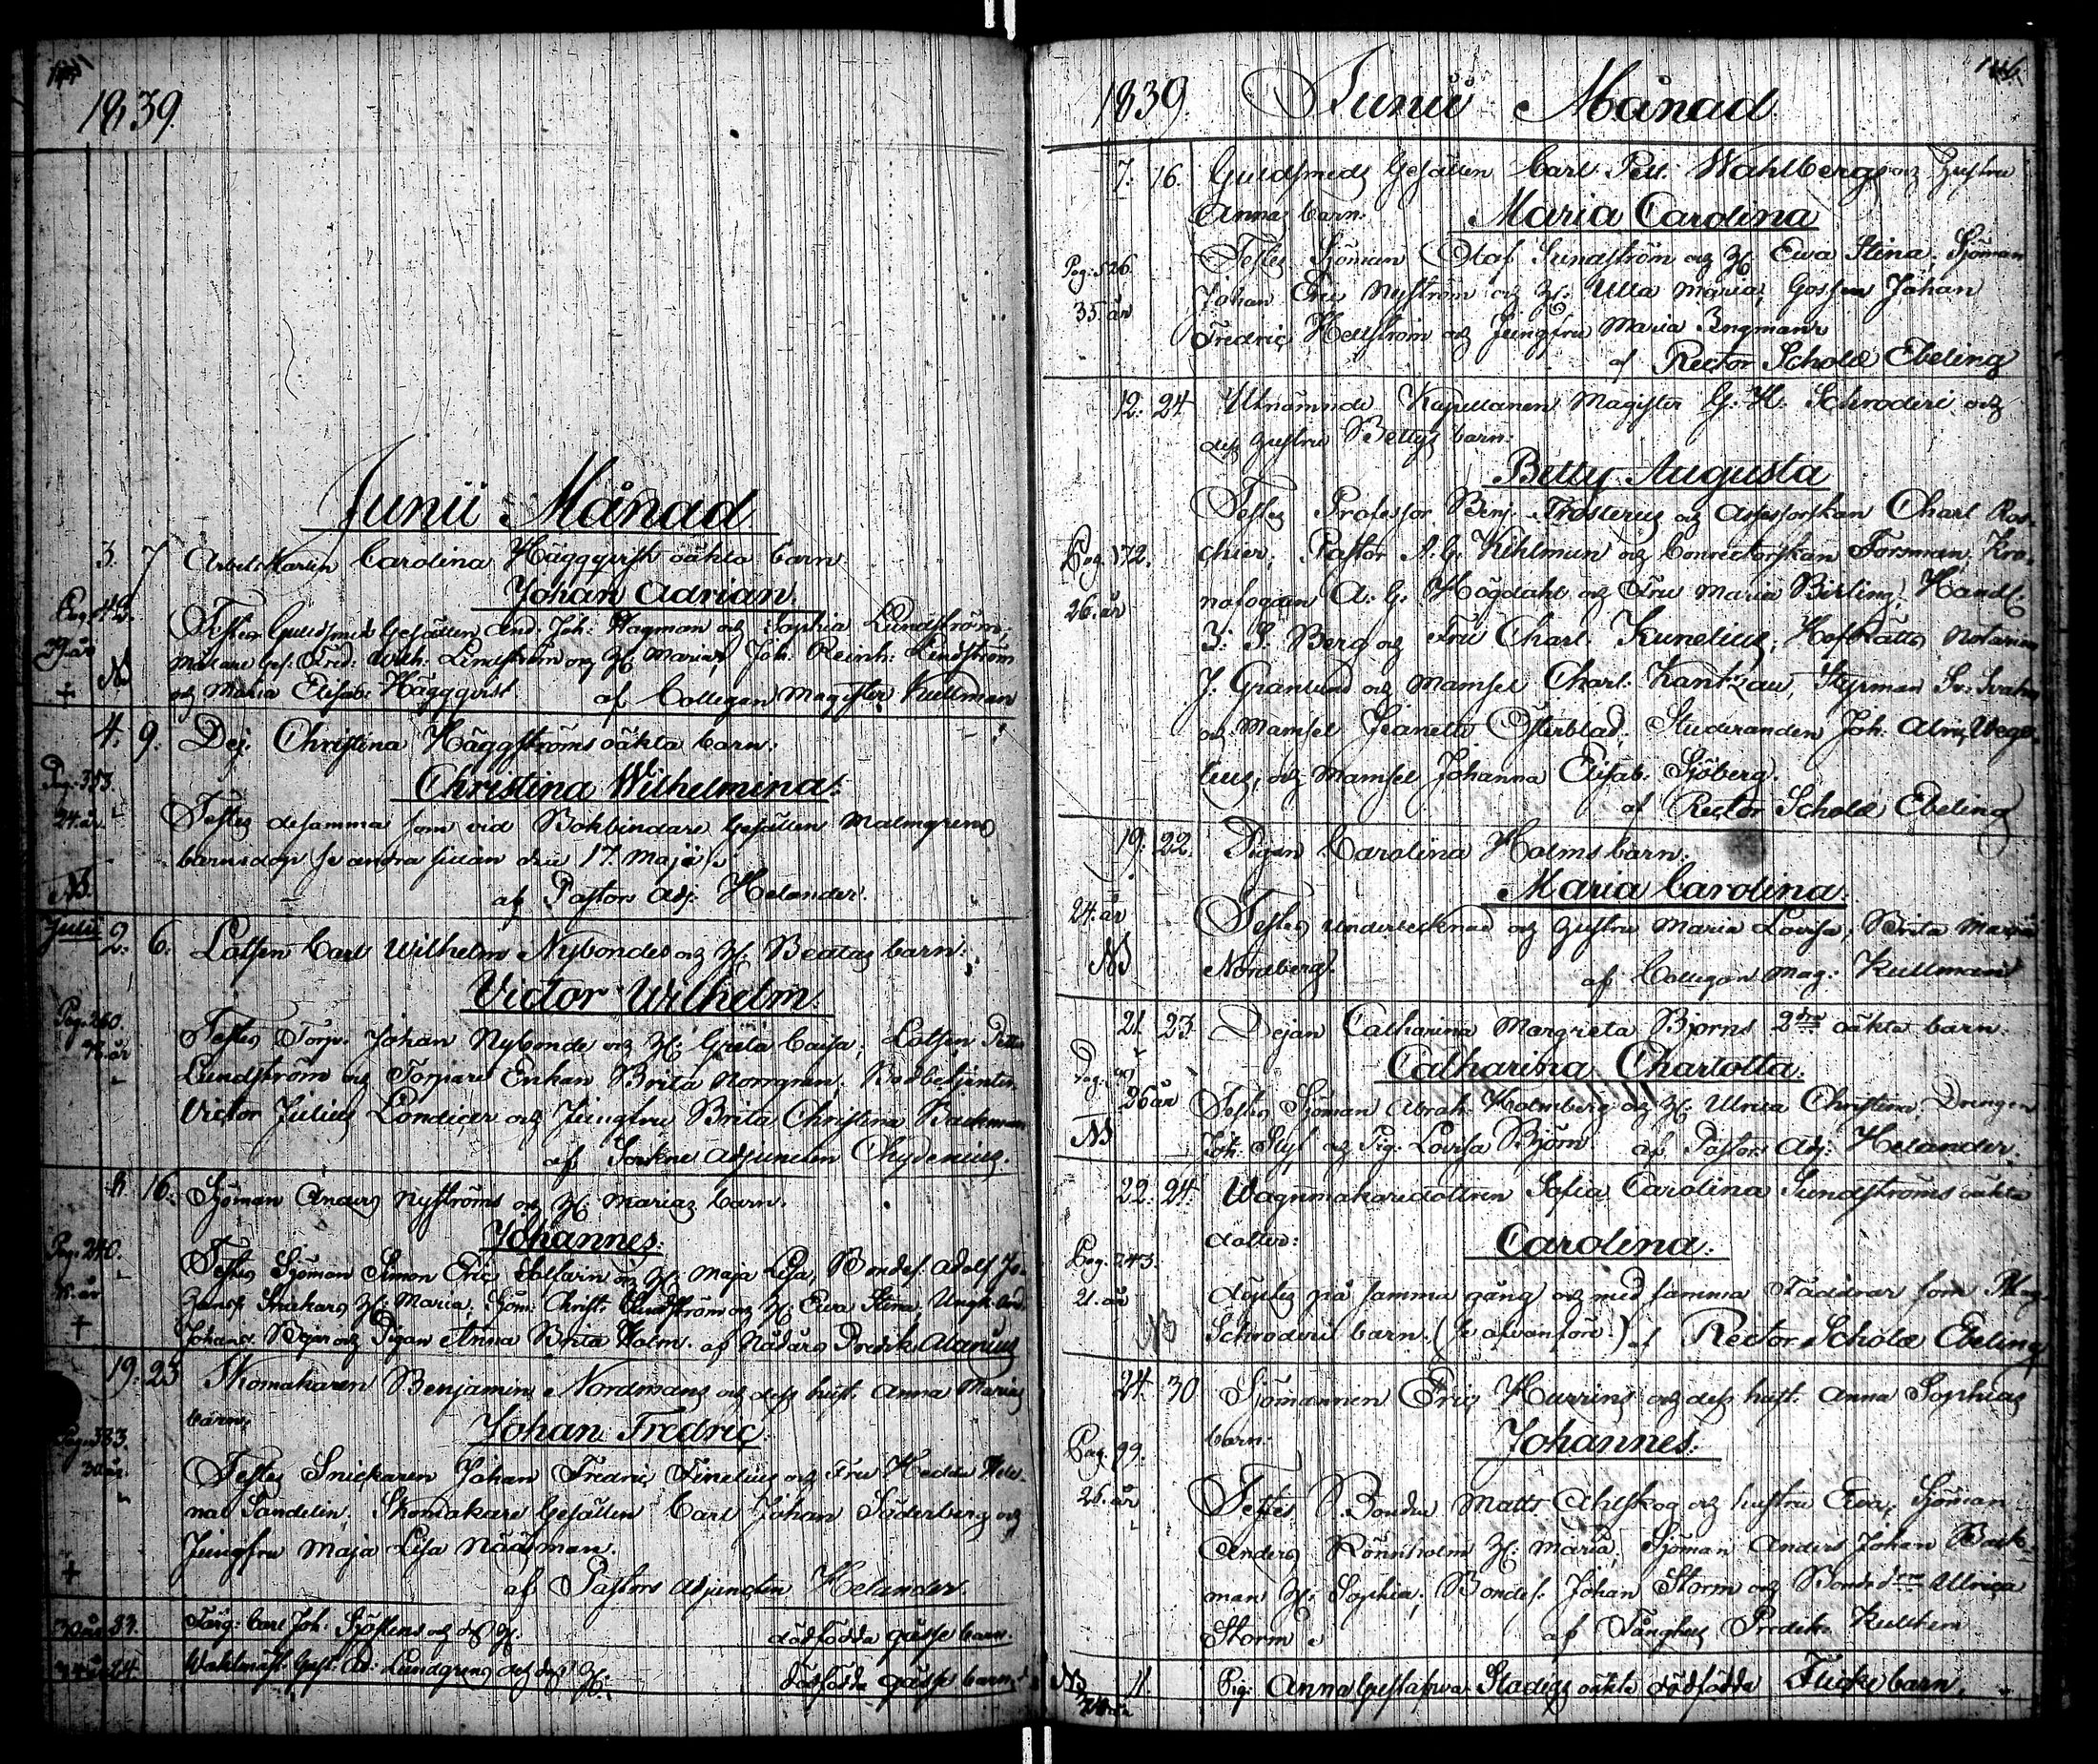 1839.
Junii Månad
3. 7 Arbets Karlin Carolina Häggqvists oäkta barn
Johan Adrian.
Pag. 42. Testes Guldsmeds Gesällen And. Joh. Hagman och Sophia Lundström,
39. år Målare Ges: Fred: Wilh: Lindström och H. Maria, Joh: Reinh: Lindström
N3 och Maria Elisab: Häggqvist af Collegan Magister Kullman
4. 9. Dej. Christina Häggströms oäkta barn:
Pag. 353. Christina Wilhelmina.
24. år. Testes desamma som vid Bokbindare Gesällen Malmgrens
barnsdop se andra sidan den 17. Maji.
N3. af Pastors Adj. Helander.
Julii 2. 6. Lotsen Carl Wilhelm Nybondes och H. Beatas barn:
Victor Wilhelm.
Pag. 260. Testes Torp. Johan Nybonde och H. Greta Caisa; Lotsen Petter
år Lundström och Torpare Enkan Brita Norrgren; Bodbetjenten
Victor Julius Londicer och Jungfru Brita Christina Backman
af Sockne Adjuncten Chydenius.
16. Sjöman Anders Nyströms och H. Marias barn.
Johannes.
Pag. 240. Testes Sjöman Simon Eric och H. Maja Lisa, Bondes. Adolf Jo-
år H. Maria. Sjöm. Christ. Lundström och H. Ewa Stina,
+ Johans. och Pigan Anna Brita Holm. af Nådårs Predik. Alcenius
19. 23 Skomakaren Benjamin Nordmans och dess hust. Anna Marias
barn.
Johan Fredric
Pag. 333. Testes Snickaren Johan Fredric Finelius och Fru Hedda Hele-
30 år. na Sandelin; Skomakare Gesällen Carl Johan Söderberg och
Jungfru Maja Lisa Näätman.
+ af Pastors Adjuncten Helander.
30 år 23. Färg: Carl Joh. Sjöstens och dess H: dödfödda gosse barn.
24. Ad: Lundgrens och dess H: dödfödda gosse barn.
1839. Junii Månad
7. 16. Guldsmeds Gesällen Carl Pett. Wahlbergs och Hustru
Annas barn. Maria Carolina
Pag. 526. Testes Sjöman Olof Sundström och H. Ewa Stina; Sjöman
35. år Johan Eric Nyström och H: Ulla Maria; Gossen Johan
Fredric Hellström och Jungfru Maria Engman.
af Rector Scholæ Ebeling
12. 24 Utnämnde Kapellanen Magister G. H. Schroderi och
dess Hustru Bettys barn:
Betty Augusta
Testes Professor Benj. Frosterus och Assessorskan Charl. Ros-
Pag. 172. chier; Pastor A. G. Kihlman och Conrectorskan Forsman; Kro-
26. år nofogden A. G. Högdahl och Fru Maria Birling; Handl.
Z: S. Berg och Fru Charl. Kunelius; Hofrätts Notarien
J. Granlund och Mamsel Charl. Kantzau, Styrman
och Mamsel Jeanette Österblad; Studeranden Joh. Alric Wege-
lius, och Mamsel Johanna Elisab: Sjöberg.
af Rector Scholæ Ebeling
19. 22. Pigan Carolina Holms barn.
Maria Carolina.
24. år Testes undertecknad och Hustru Maria Lovisa; Brita Maria
N3 Nordberg. af Collegan Mag: Kullman
21. 23. Dejan Catharina Margreta Björns 2dra oäkta barn.
Catharina Charlotta.
26 år Testes Sjöman Abrah. Holmberg och H: Ulrica Christina; Drengen
N3 Joh. och Pig. Lovisa Björn af Pastors Adj: Helander.
22. 24. Wagnmakaredottren Sofia Carolina Sundströms oäkta
dotter: Carolina.
Pag. 243. döptes på samma gång och med samma Faddrar som Mag.
21. år Schroderi barn. (Se ofvanföre.) af Rector Scholæ Ebeling
N3
24. 30 Sjömannen Eric Hurrins och dess hust. Anna Sophias
barn. Johannes.
Pag. 99.
25. år Testes Bonden Matts Ahlskog och hustru Ewa; Sjöman
Anders Rönnholm H. Maria; Sjöman Anders Johan Back-
man H. Sophia; Bondes: Johan Storm och Bonded. Ulrica
Storm af Predik. Kullhem
N3 11. Pig: Anna Gustafva Stadigs oäkta dödfödda Flickebarn.